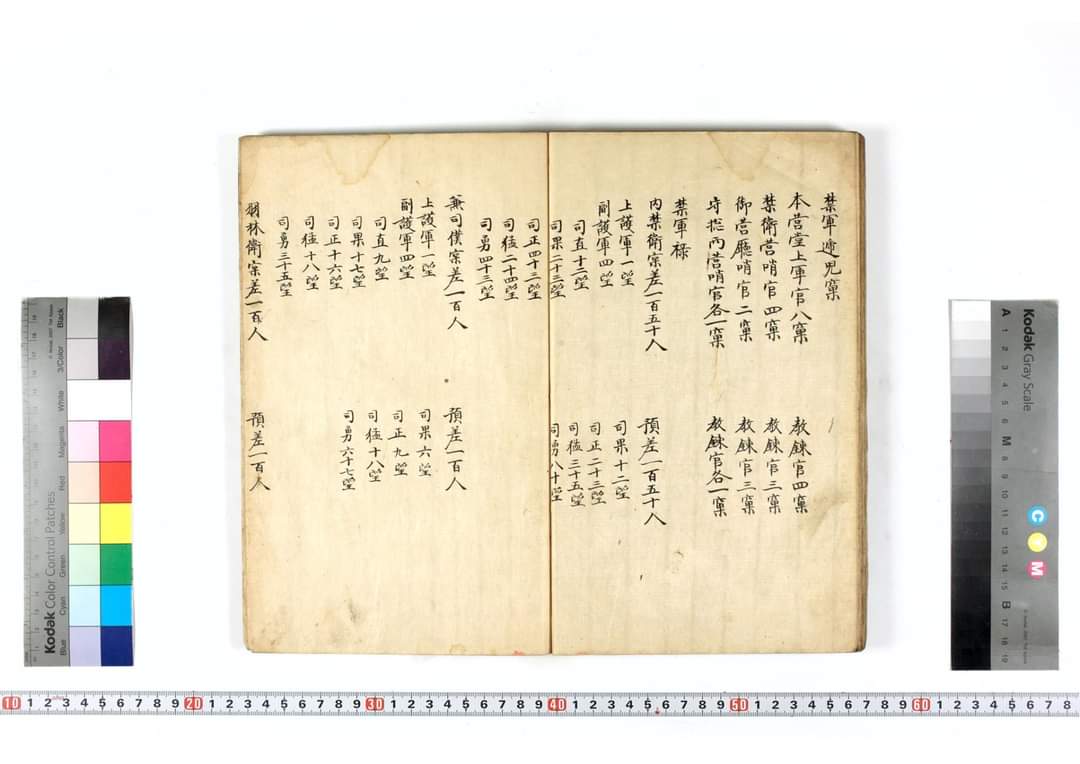 禁軍遞兒窠
本營堂上軍官八窠 教鍊官四窠
禁衛營哨官四窠 教鍊官三窠
御營廳哨官二窠 教鍊官三窠
守摠內營哨官各一窠 教鍊官各一窠
禁軍祿
內禁衛宗差一百五十人 預差一百五十人
上護軍一望 司果十二望
副護軍四望 司正二十三望
司直十二望 司猛三十五望
司果二十三望 司勇八十望
司正四十三望
司猛二十四望
司勇四十三望
兼司僕宗差一百人 預差一百人
上護軍一望 司果六望
副護軍四望 司正九望
司直九望 司猛十八望
司果十七望 司勇六十七望
司正十六望
司猛十八望
司勇三十五望
羽林衛宗差一百人 預差一百人
Kodak Color Control Patches
Blue
Cyan
Green
Yellow
Red
Magenta
White
3/Color
Black
Kodak Gray Scale
C
Y
M
A 1 2 3 4 5 6 M 8 9 10 11 12 13 14 15 B 17 18 19
10 1 2 3 4 5 6 7 8 9 20 1 2 3 4 5 6 7 8 9 30 1 2 3 4 5 6 7 8 9 40 1 2 3 4 5 6 7 8 9 50 1 2 3 4 5 6 7 8 9 60 1 2 3 4 5 6 7 8